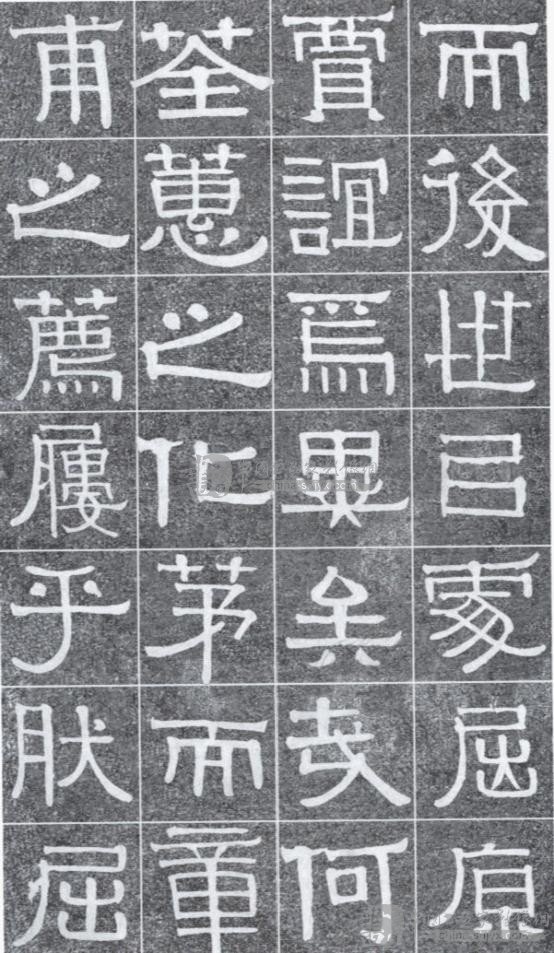 而後世㠯處屈原
賈誼爲異矣何
荃蕙之化茅而章
甫之薦屨乎肰屈